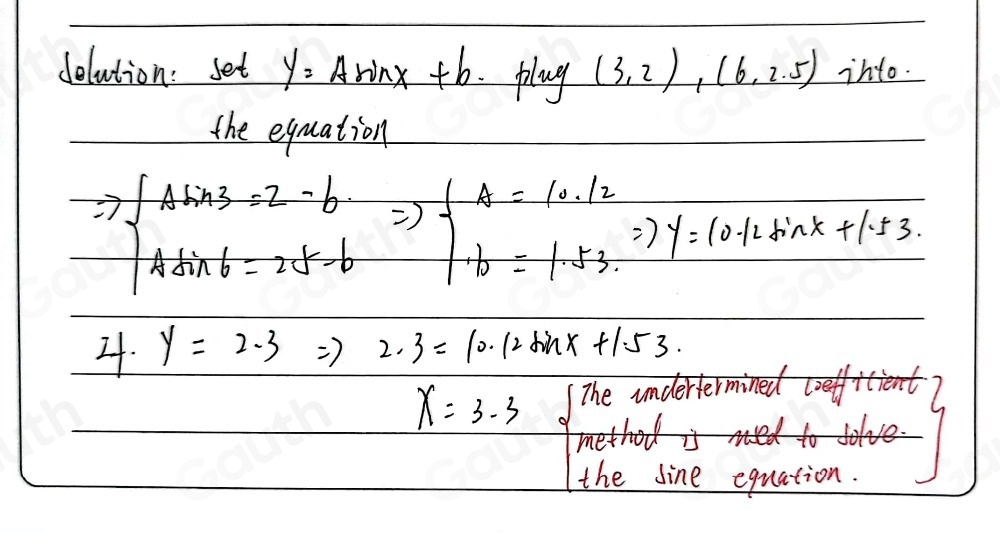 Solution: set Y = A sin x + b. plug (3, 2), (6, 2.5) into.
the equation
=> { A sin 3 = 2 - b. => { A = 10.12
A sin 6 = 2.5 - b b = 1.53. => Y = 10.12 sin x + 1.53.
If. Y = 2.3 => 2.3 = 10.12 sin x + 1.53.
X = 3.3
{ The undertermined coefficient }
method is used to solve.
the sine equation.